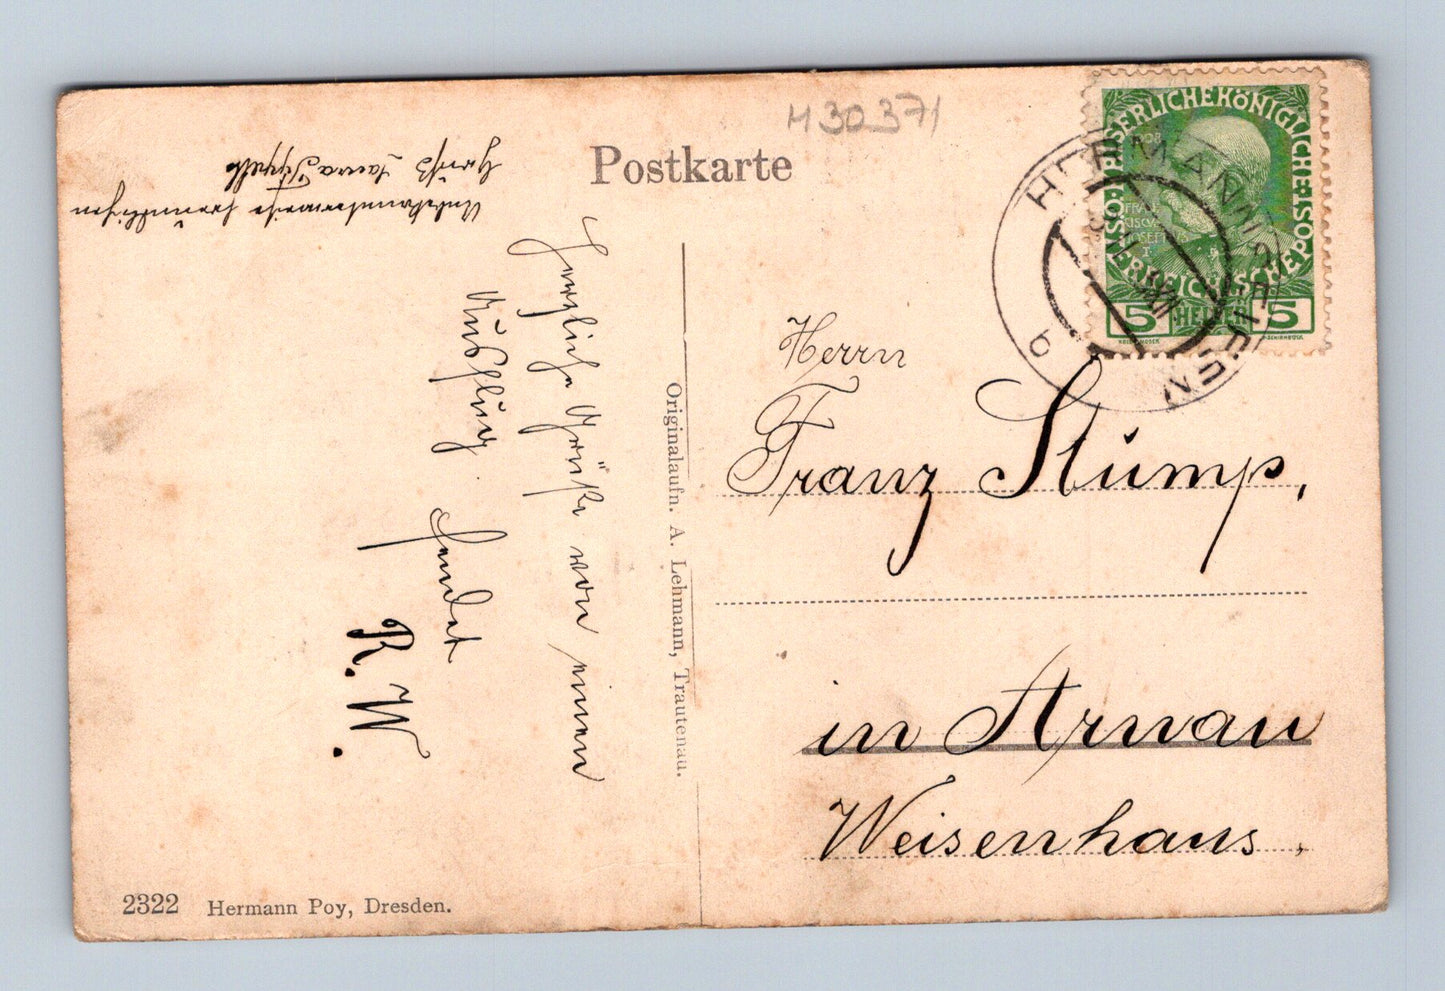 H30371
Postkarte
KAISERLICHE KÖNIGLICHE
ÖSTERREICHISCHE POST
1908
FRAN
CISCVS
JOSEPH
I
5 HELLER 5
HERMANNSEIFEN
b
Herrn
Franz Stump,
in Arnau
Weisenhaus.
Herzliche Grüße von einem
Ausflug sendet
R. W.
Unbekannterweise freundlichen
Gruß
Originalaufn. A. Lehmann, Trautenau.
2322 Hermann Poy, Dresden.